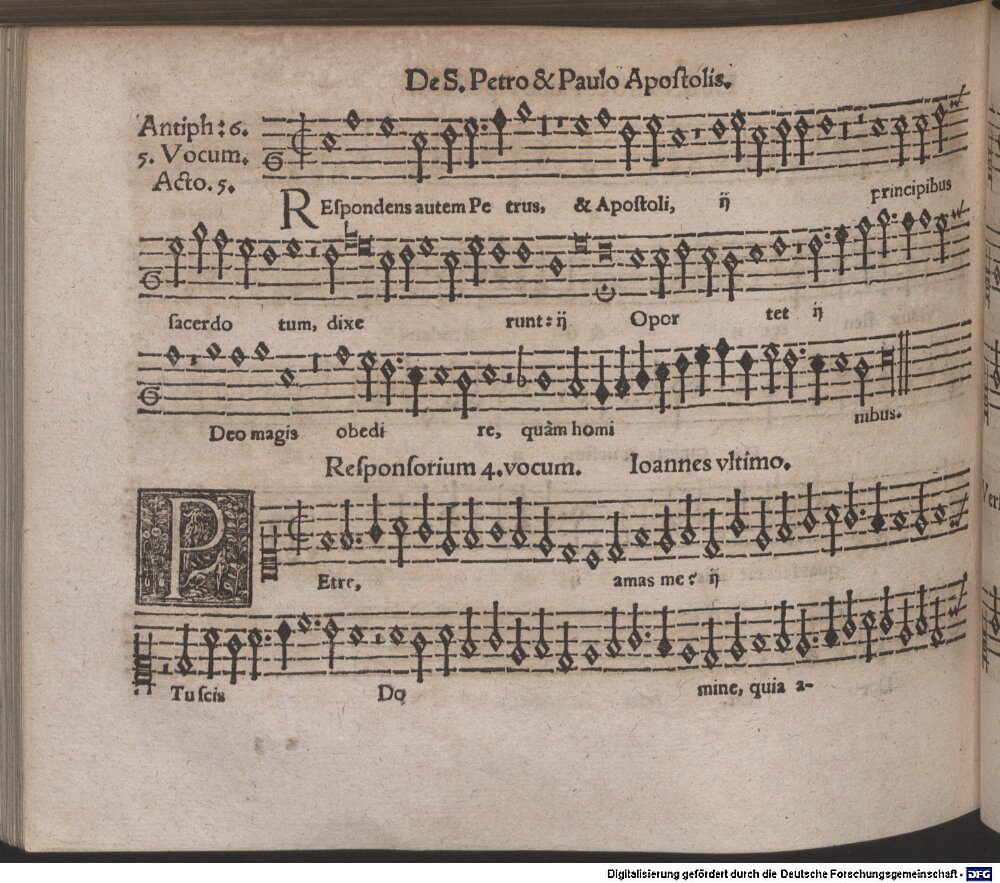 De S. Petro & Paulo Apoſtolis.
Antiph: 6.
5. Vocum.
Acto. 5.
REſpondens autem Pe trus, & Apoſtoli, ij principibus
ſacerdo tum, dixe runt: ij Opor tet ij
Deo magis obedi re, quàm homi nibus.
Reſponſorium 4. vocum. Ioannes vltimo.
PEtre, amas me? ij
Tu ſcis Do mine, quia a-
Digitalisierung gefördert durch die Deutsche Forschungsgemeinschaft - DFG